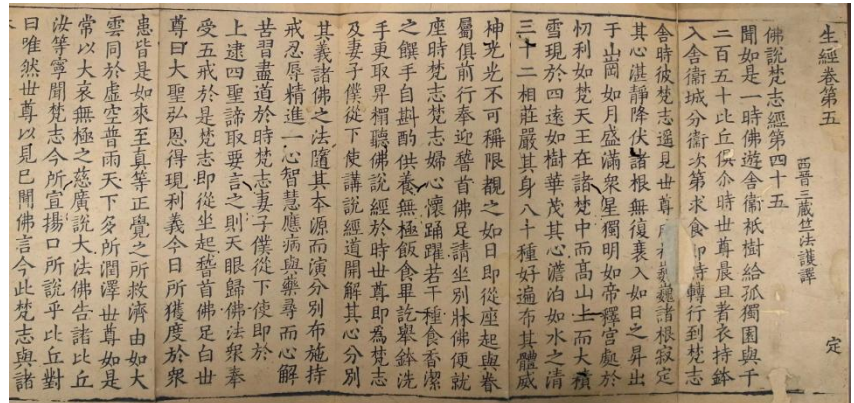 生經卷第五　定
西晉三藏竺法護譯
佛說梵志經第四十五
聞如是一時佛遊舍衞祇樹給孤獨園與千
二百五十比丘俱尒時世尊晨旦著衣持鉢
入舍衞城分衞次第求食即時轉行到梵志
舍時彼梵志遥見世尊巍巍諸根寂定
其心湛静降伏諸根無復衰入如日之昇出
于山崗如月盛滿衆星獨明如帝釋宫處於
忉利如梵天王在諸梵中而高山上而大積
雪現於四遠如樹華茂其心澹泊如水之清
三十二相莊嚴其身八十種好遍布其體威
神光光不可稱限覩之如日即從座起與眷
屬俱前行奉迎稽首佛足請坐别牀佛便就
座時梵志梵志婦心懷踊躍若干種食香潔
之饌手自斟酌供養無極飯食畢訖舉鉢洗
手更取卑榻聽佛說經於時世尊即爲梵志
及妻子僕從下使講說經道開解其心分别
其義諸佛之法隨其本源而演分别布施持
戒忍辱精進一心智慧應病與藥尋而心解
苦習盡道於時梵志妻子僕從下使即於
上逮四聖諦取要言之則天眼歸佛法衆奉
受五戒於是梵志即從坐起稽首佛足白世
尊曰大聖弘恩得現利義今日所獲度於衆
患皆是如來至真等正覺之所救濟由如大
雲同於虚空普雨天下多所潤澤世尊如是
常以大哀無極之慈廣說大法佛告諸比丘
汝等寧聞梵志今所宣揚口所說乎比丘對
曰唯然世尊以見已聞佛言今此梵志與諸